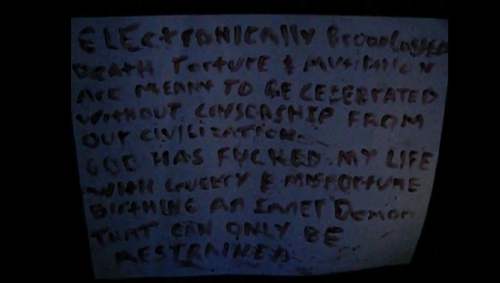 ELEctRONICAlly BroadcasteD
DEATH TORTURE & MUTILATION
ARE MEANT TO BE CELEBRATED
WITHOUT CENSORSHIP FROM
OUR CIVILIZATION.
GOD HAS FUCKED MY LIFE
WITH CRUELTY & MISFORTUNE
BIRTHING AN INNER DEMON
THAT CAN ONLY BE
RESTRAINED